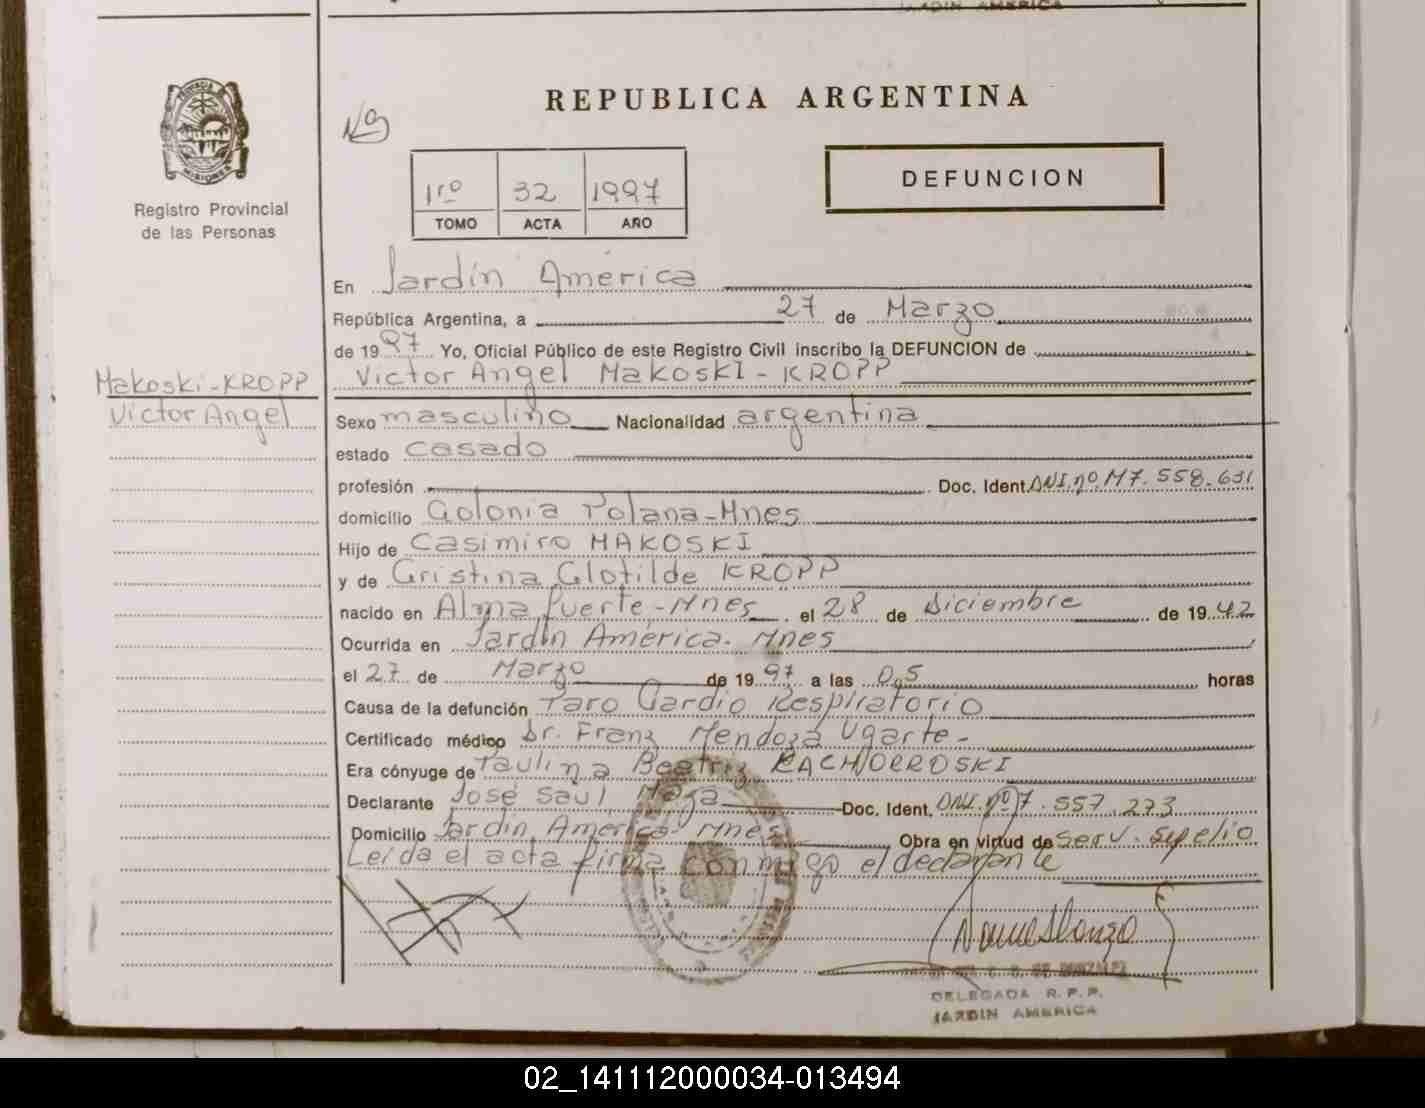 JARDIN AMERICA
REPUBLICA ARGENTINA
Nº
1ro 32 1997
TOMO ACTA AÑO
DEFUNCION
PROVINCIA DE MISIONES
Registro Provincial
de las Personas
En Jardín América
República Argentina, a 27 de Marzo
de 1997 Yo, Oficial Público de este Registro Civil inscribo la DEFUNCION de
Makoski-KROPP
Victor Angel
Victor Angel MakoskI - KROPP
Sexo masculino Nacionalidad argentina
estado casado
profesión Doc. Ident. DNI.nº.M7.558.631
domicilio Colonia Polana-Mnes
Hijo de Casimiro MAKOSKI
y de Cristina Clotilde KROPP
nacido en Alma fuerte-Mnes el 28 de Diciembre de 1942
Ocurrida en Jardín América. Mnes
el 27 de Marzo de 1997 a las 0,5 horas
Causa de la defunción Paro Cardio Respiratorio
Certificado médico Dr. Franz Mendoza Ugarte-
Era cónyuge de Paulina Beatriz
Declarante José Saúl Maza Doc. Ident. DNI.nº7.557.273
Domicilio Jardín América-Mnes Obra en virtud de Serv. Sepelio
Leída el acta firma conmigo el declarante
DELEGADA R. P. P.
JARDIN AMERICA
02_141112000034-013494